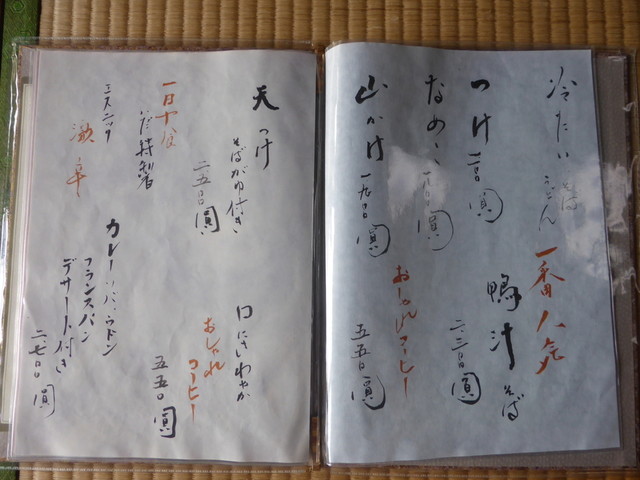 冷たい そば うどん
つけ
なめこ
山かけ 一九〇〇圓
一番人気
鴨汁 そば
二、二〇〇圓
おしゃれコーヒー
五五〇圓
天つけ
そばがゆ付き
二五〇〇圓
一日十食
いだ特製
エスニック
激辛
カレーソバ、ウドン
フランスパン
デザート付き
二、七〇〇圓
口にさわやか
おしゃれ
コーヒー
五五〇圓